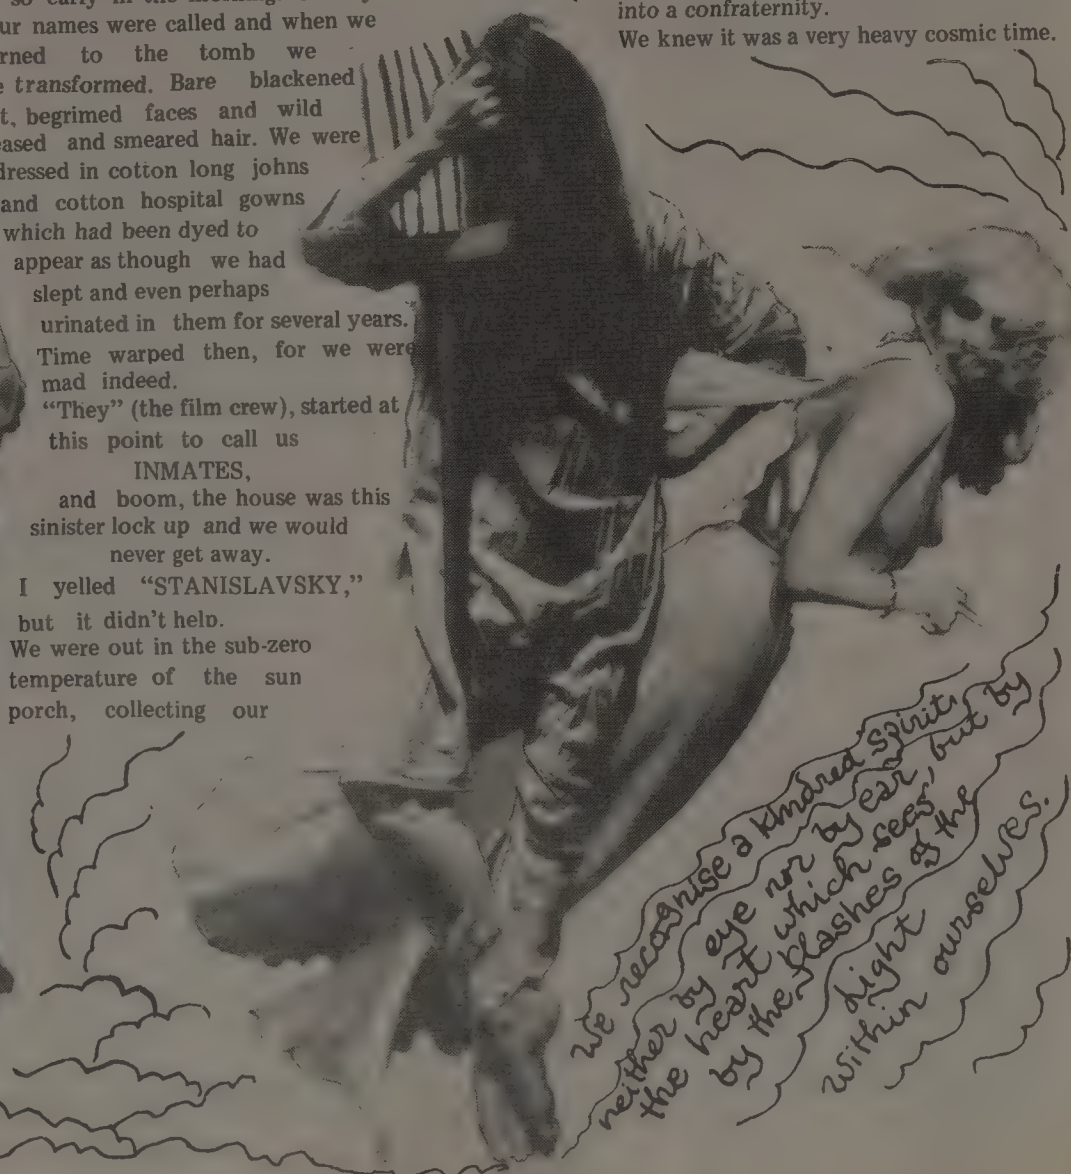 so early in the morning.
ur names were called and when we
rned to the tomb we
e transformed. Bare blackened
t, begrimed faces and wild
eased and smeared hair. We were
dressed in cotton long johns
and cotton hospital gowns
which had been dyed to
appear as though we had
slept and even perhaps
urinated in them for several years.
Time warped then, for we were
mad indeed.
“They” (the film crew), started at
this point to call us
INMATES,
and boom, the house was this
sinister lock up and we would
never get away.
I yelled “STANISLAVSKY,”
but it didn't help.
We were out in the sub-zero
temperature of the sun
porch, collecting our
into a confraternity.
We knew it was a very heavy cosmic time.
We recognise a kindred spirit,
neither by eye nor by ear, but by
the heart which sees,
by the flashes of the
Light
within ourselves.